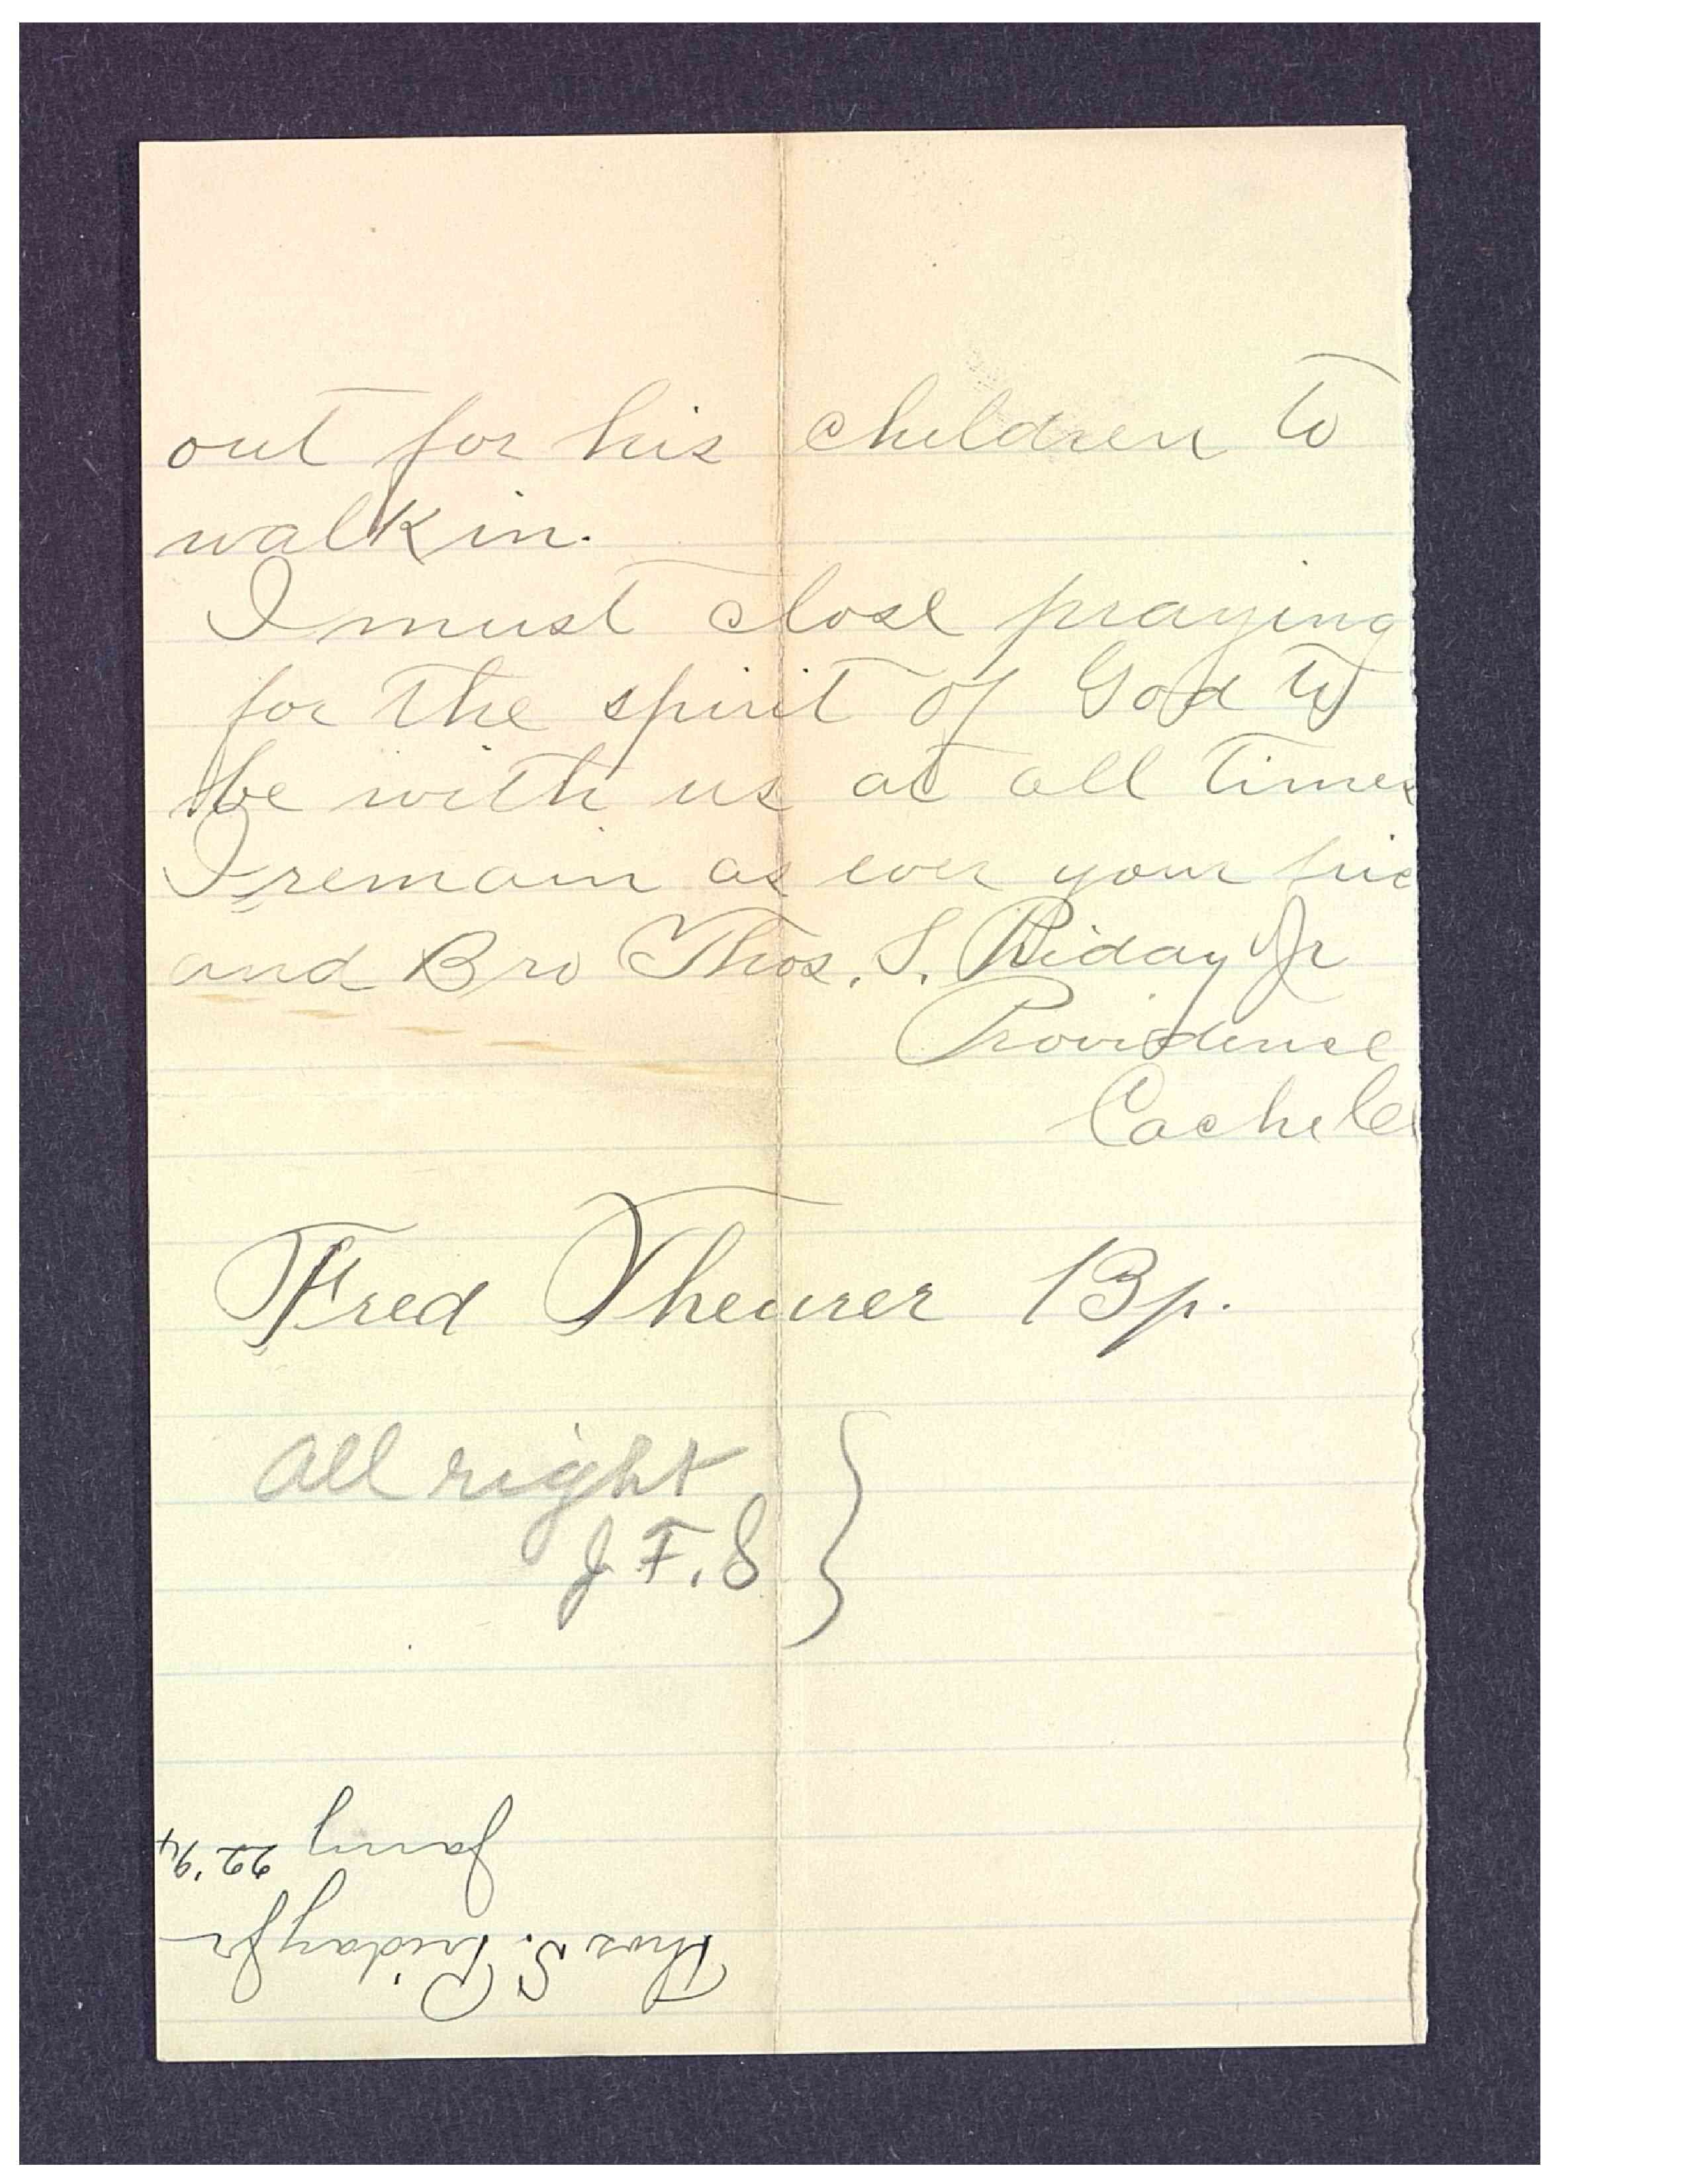 out for his children to
walk in.
I must close praying
for the spirit of God to
be with us at all times
I remain as ever your frie
and Bro Thos. S. Priday Jr
Providence
Cache Co
Fred Theurer Bp.
All right
J. F. S
Thos S. Priday Jr
Jany 22 '94